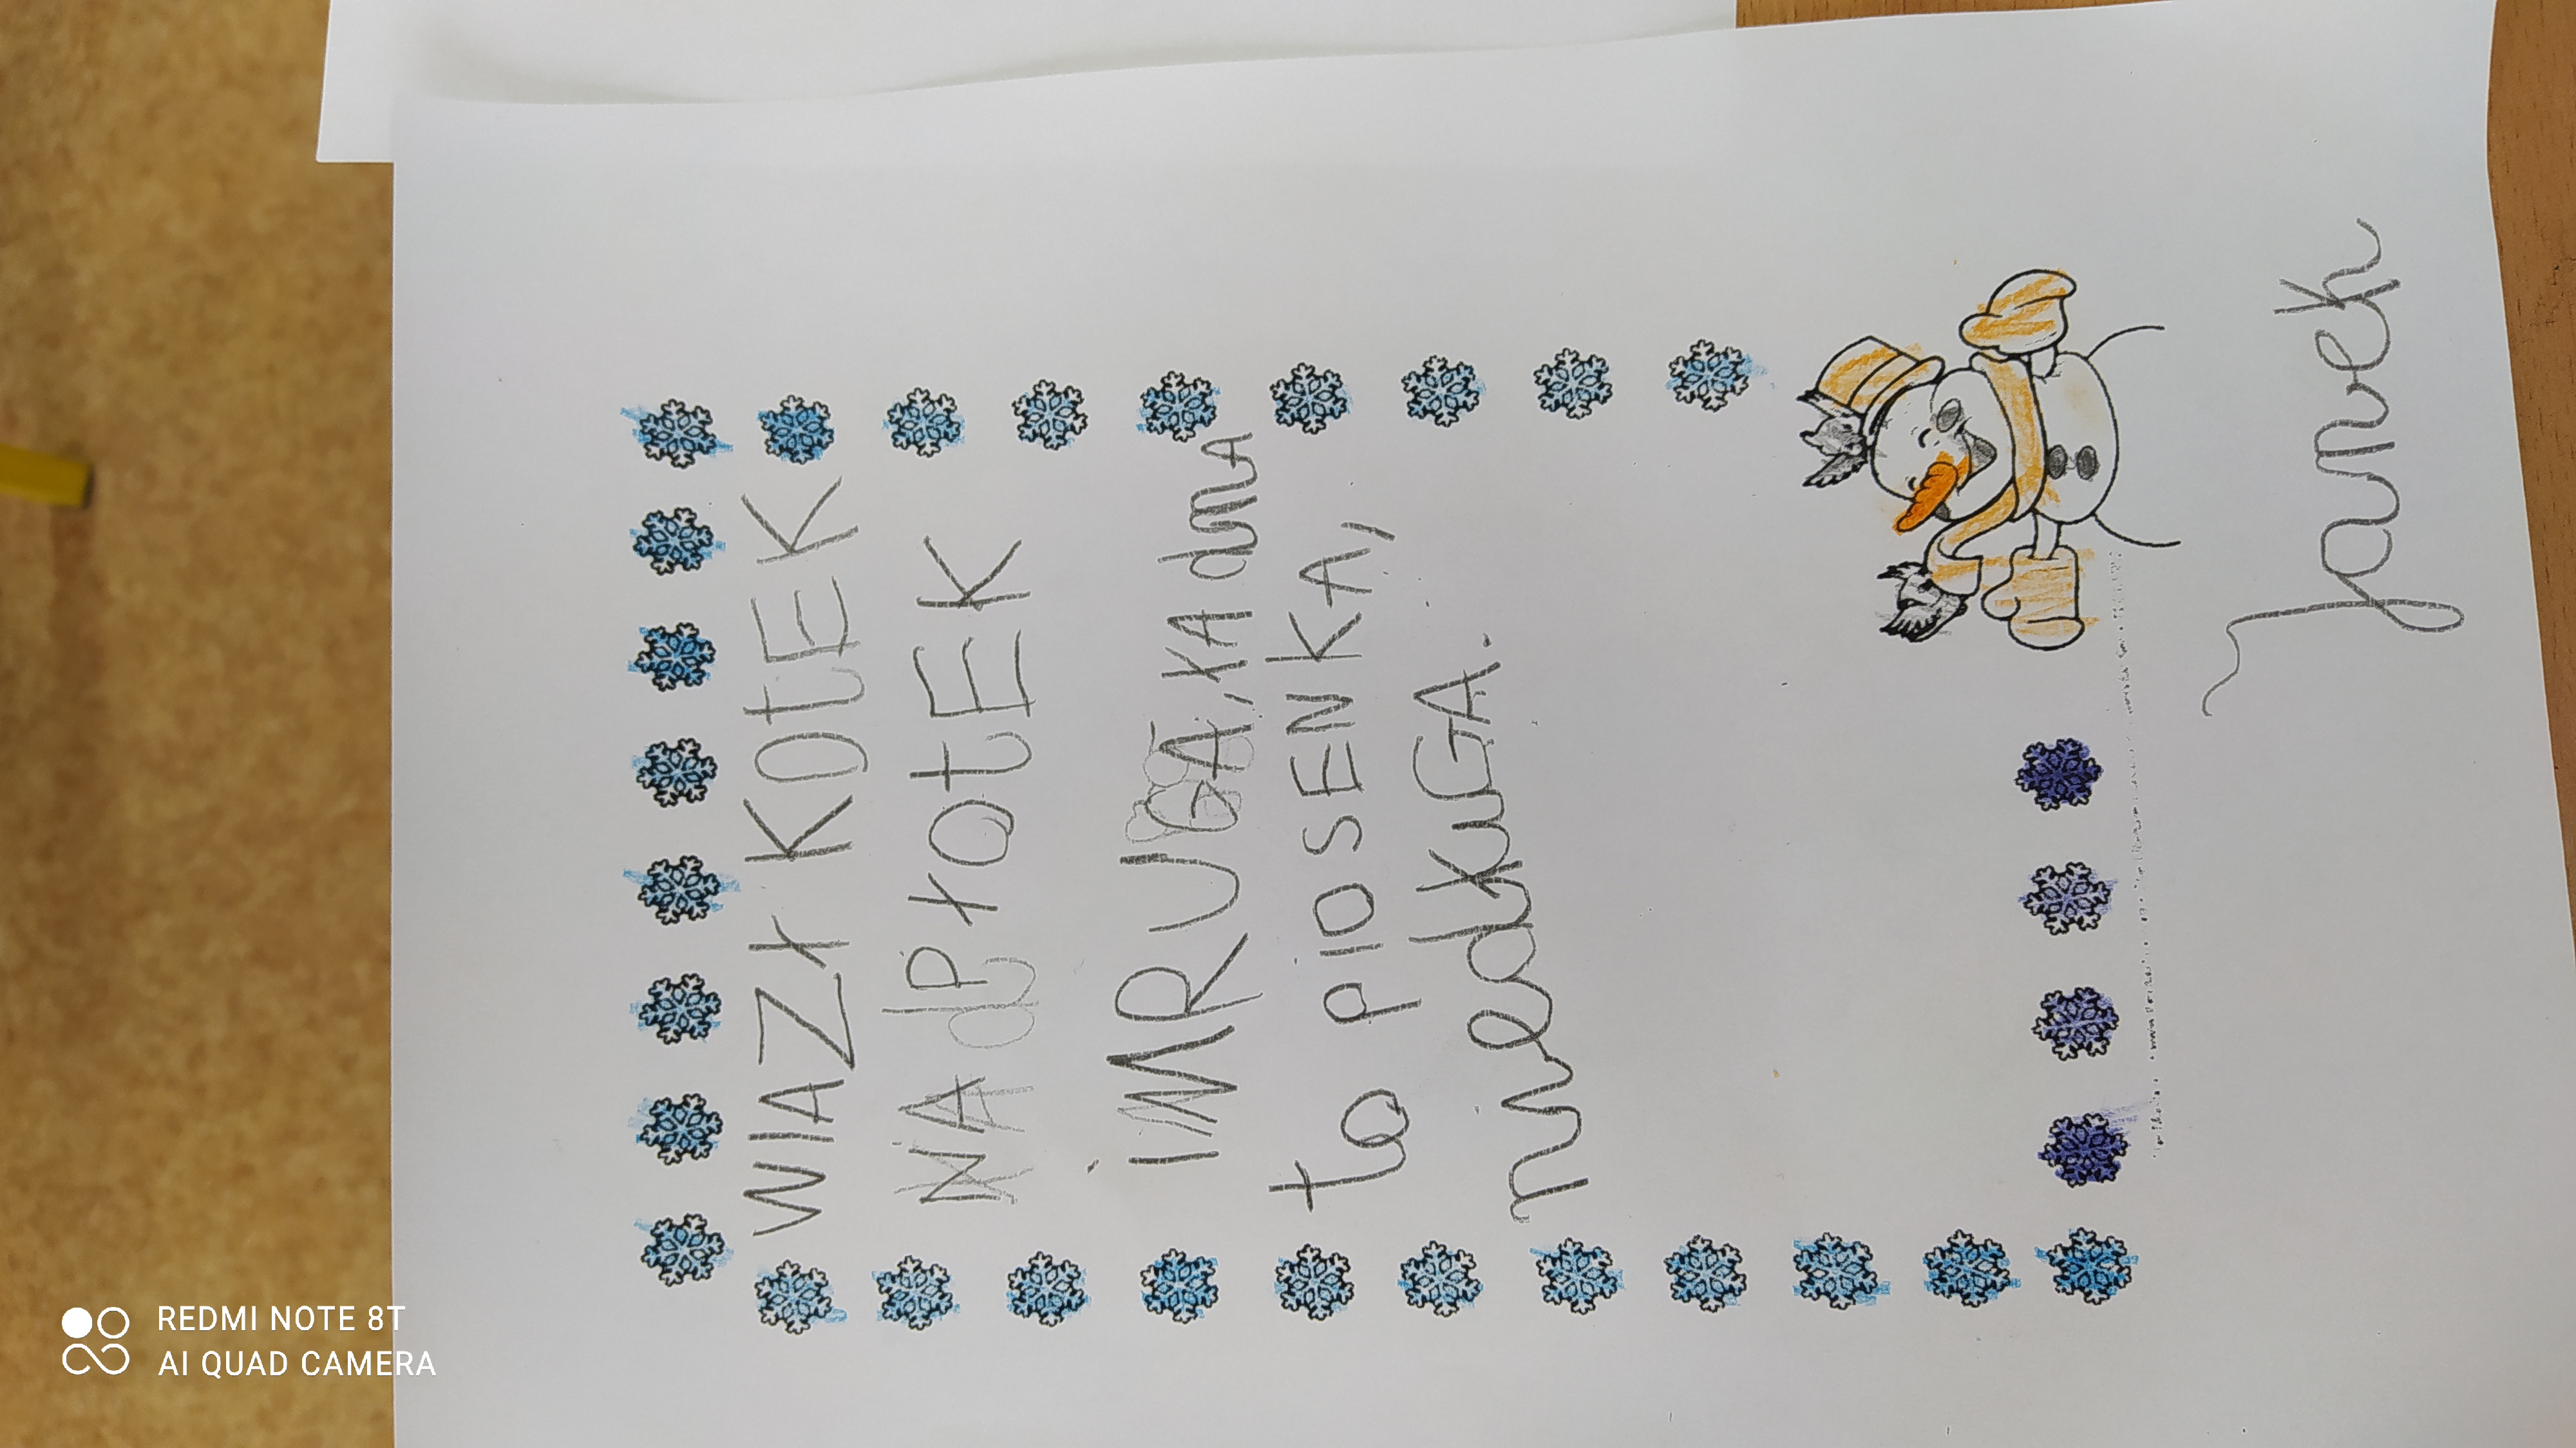 WIAZŁ KOtEK
NA dPŁOtEK
iMRUGA, ŁAdNA
to PIOSENKA,
niedŁUGA.
Janek
REDMI NOTE 8T
AI QUAD CAMERA